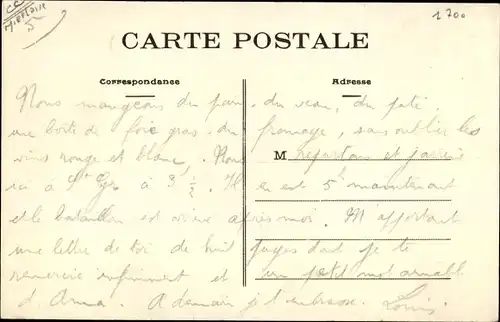 CC
Militaire
5
1700
CARTE POSTALE
Correspondance
Adresse
Nous mangeons du pain, du veau, du paté,
une boîte de foie gras, du fromage, sans oublier les
vins rouge et blanc. Nous M repartons et j'arrive
ici à St à 3h ½. Il en est 5h maintenant
et le bataillon est arrivé après moi. M'apportant
une lettre de toi de huit pages dont je te
remercie infiniment et un petit mot
d'Anna. A demain je t'embrasse. Louis